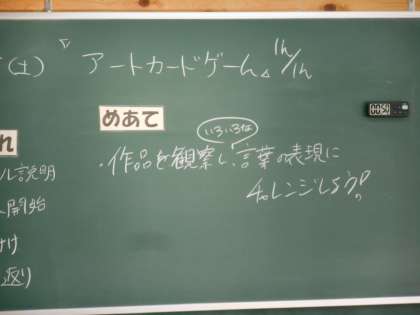 (土) アートカードゲーム 1h/1h
めあて
いろいろな
・作品を観察し、言葉の表現に
チャレンジしよう!
れ
ル説明
開始
け
返り